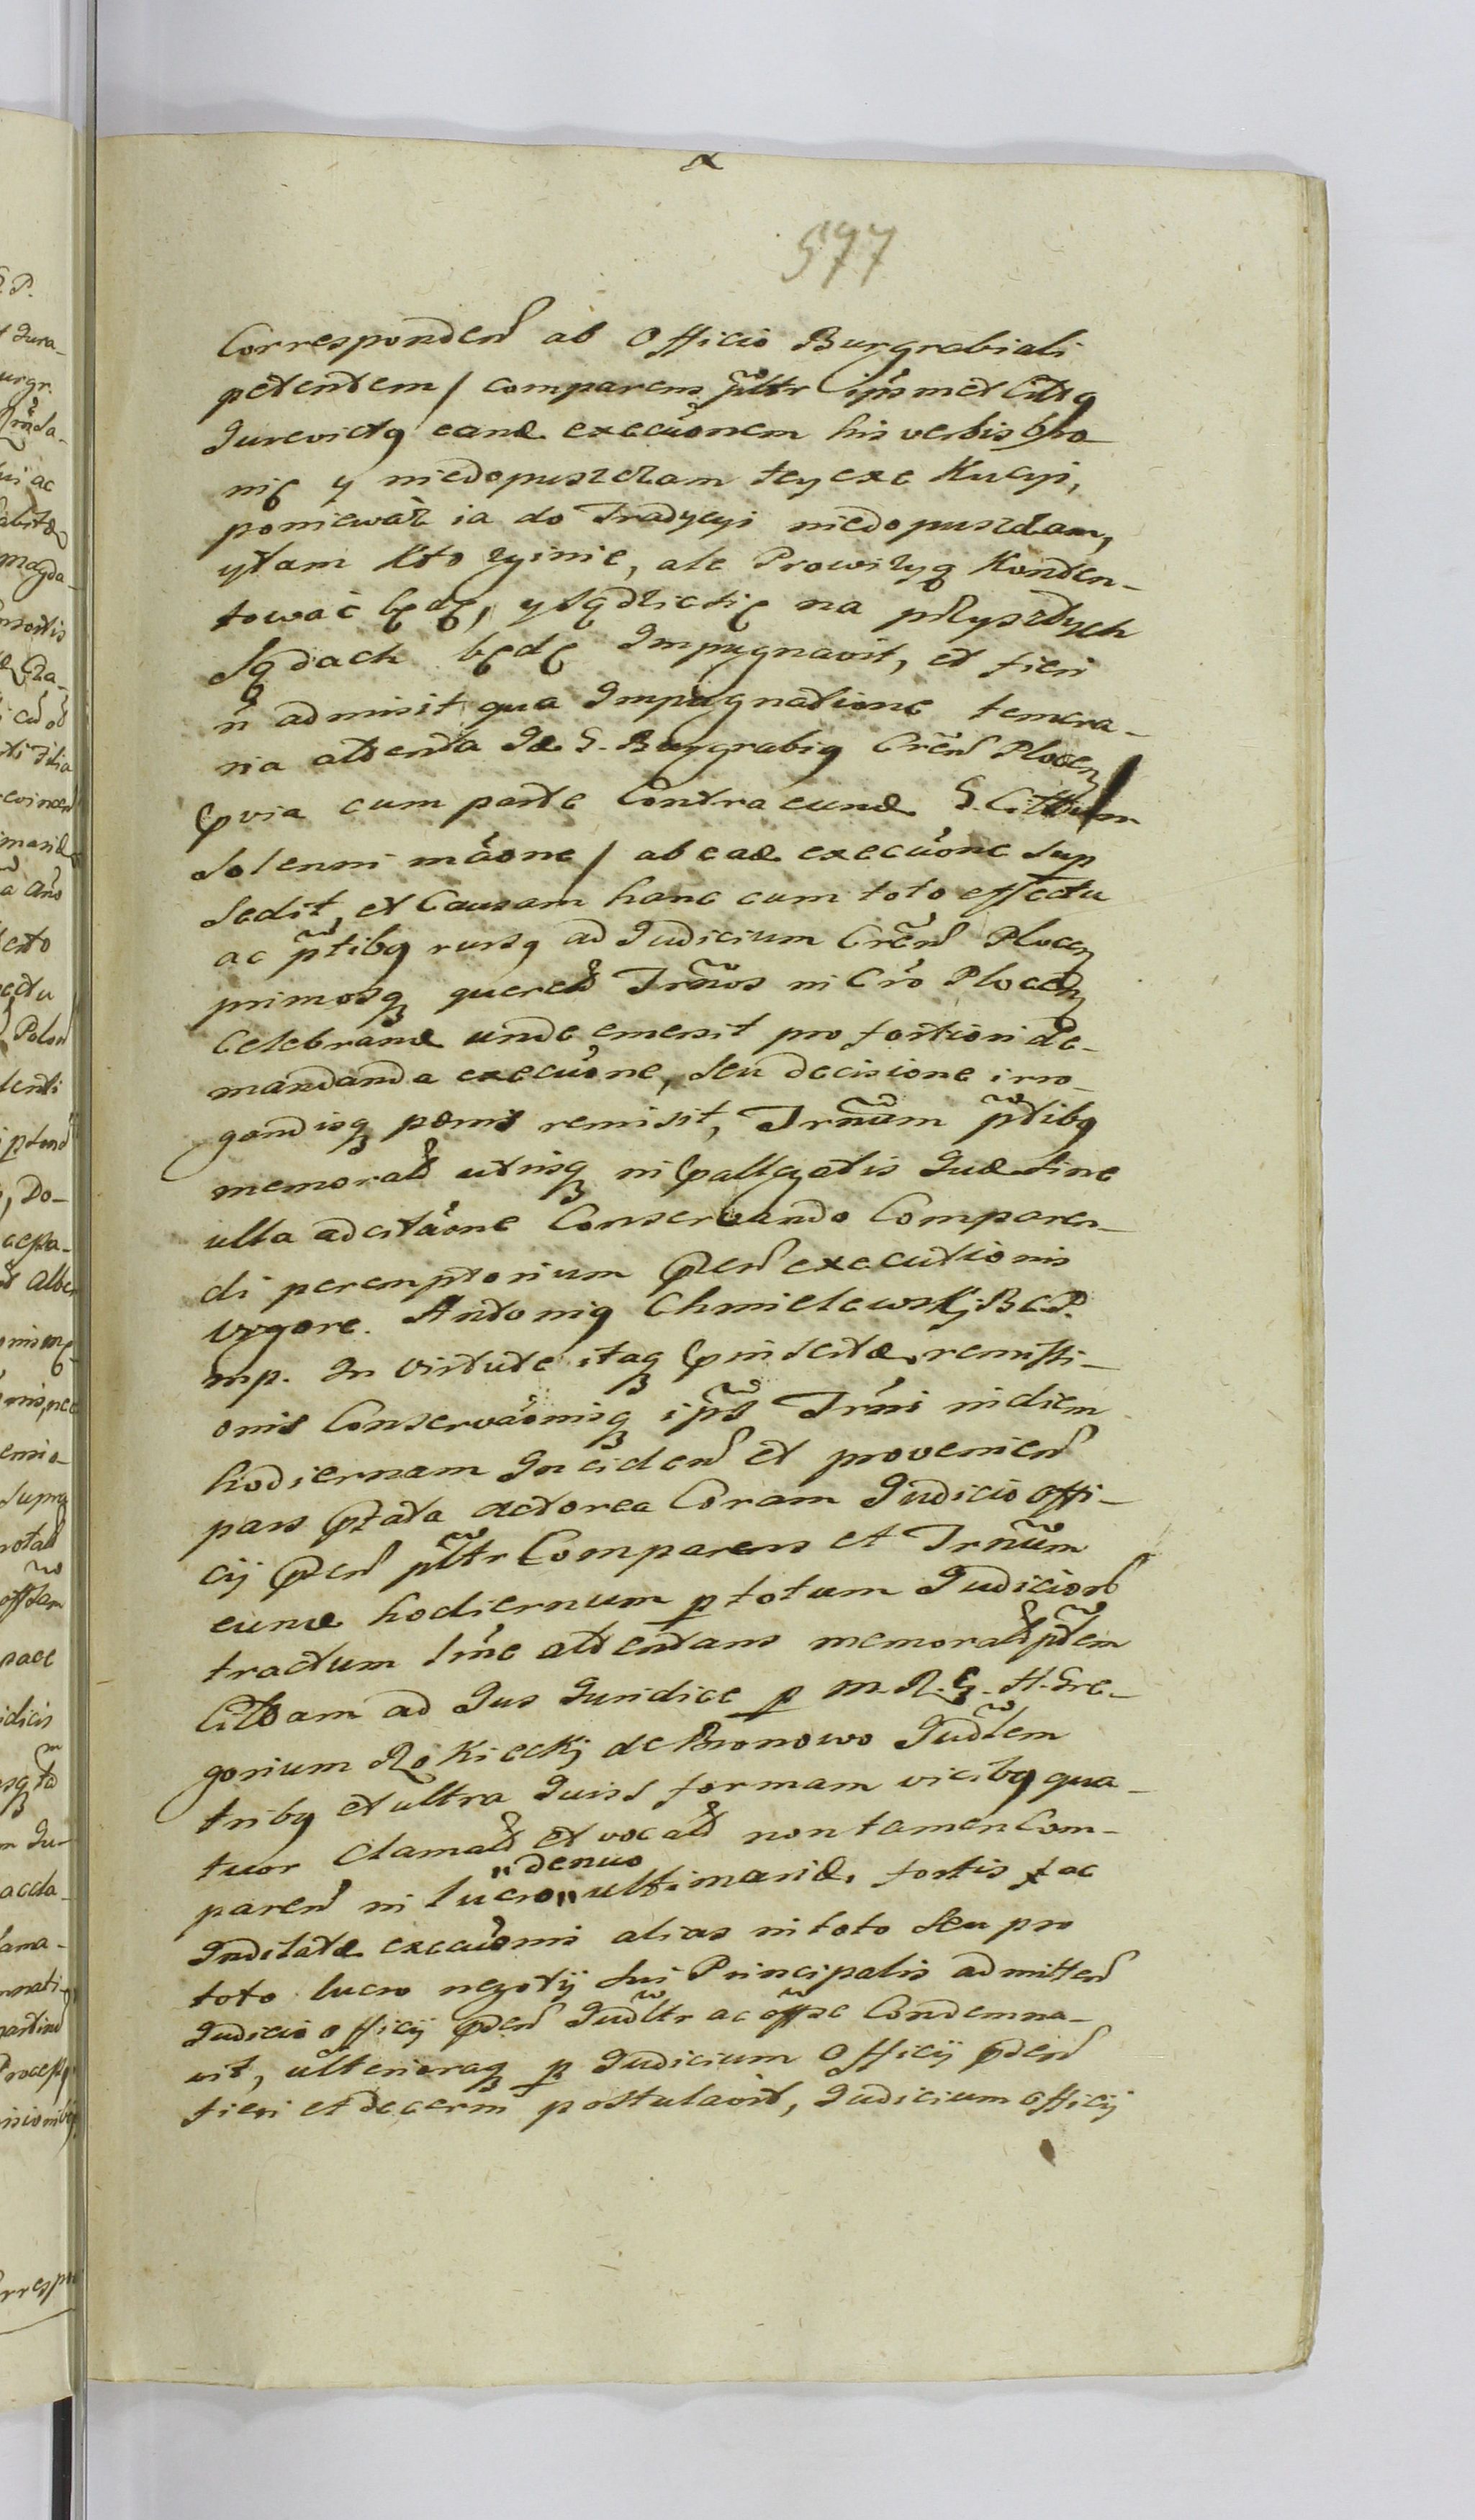 577
Corresponden ab Officio Burgrabiali
petentem / comparens pltr ipsmet Cittg
Jurevictg eande execuonem his verbis bro
nię y niedopuszczam tey exe Kucyi,
ponieważ ia do Tradycyi niedopuszczam,
ytam Kto zyinie, ale Prowizyą Konten-
tować będę, y sądzictię na przyszłych
Sądach będę Impugnavit, et fieri
n admisit qua Impugnatione temera-
ria attenta Id. G. Burgrabig Cren Plocen
via cum parte Contra eund G. Cittum
Solenni maone / ab ead execuone sup
Sedit, et Causam hanc cum toto effectu
ac ptibg rursg ad Judicium Cren Plocen
primosq queren Trnos in Cro Plocen
Celebrand unde emersit pro fortiori de-
mandanda execuone, seu decisione irro-
gandisq poenis remisit, Trnum ptibg
memorat utrisq in pallegatis Jud sine
ulla adcitaone Conservando Comparen-
di peremptorium pden executionis
vygore. Antonig Chmielewskj B.C.P.
mp. In virtute itaq pinsertæ remissi-
onis Conservaonisq ips Trni in diem
hodiernam Inciden et provenien
pars ptata actorea Coram Judicio offi-
cij pden pltr Comparens et Trnum
eund hodiernum p totum Judicior
tractum sine attentans memorat ptem
Cittam ad Jus Juridice p M. R. G. H. Gre-
gorium Rokieckj de Bronowo Judlem
tribg et ultra Juiss formam vicibg qua-
tuor Clamat et vocat non tamen Com-
paren in lucro „denuo„ ultimariæ, fortis f ac
Inditatæ execuonis alias in toto seu pro
toto lucro negotij sui Principalis admitten
Judicio officij pden Judltr ac offse Condemna-
vit, ulterioraq p Judicium Officij pden
fieri et decerni postulavit, Judicium officij